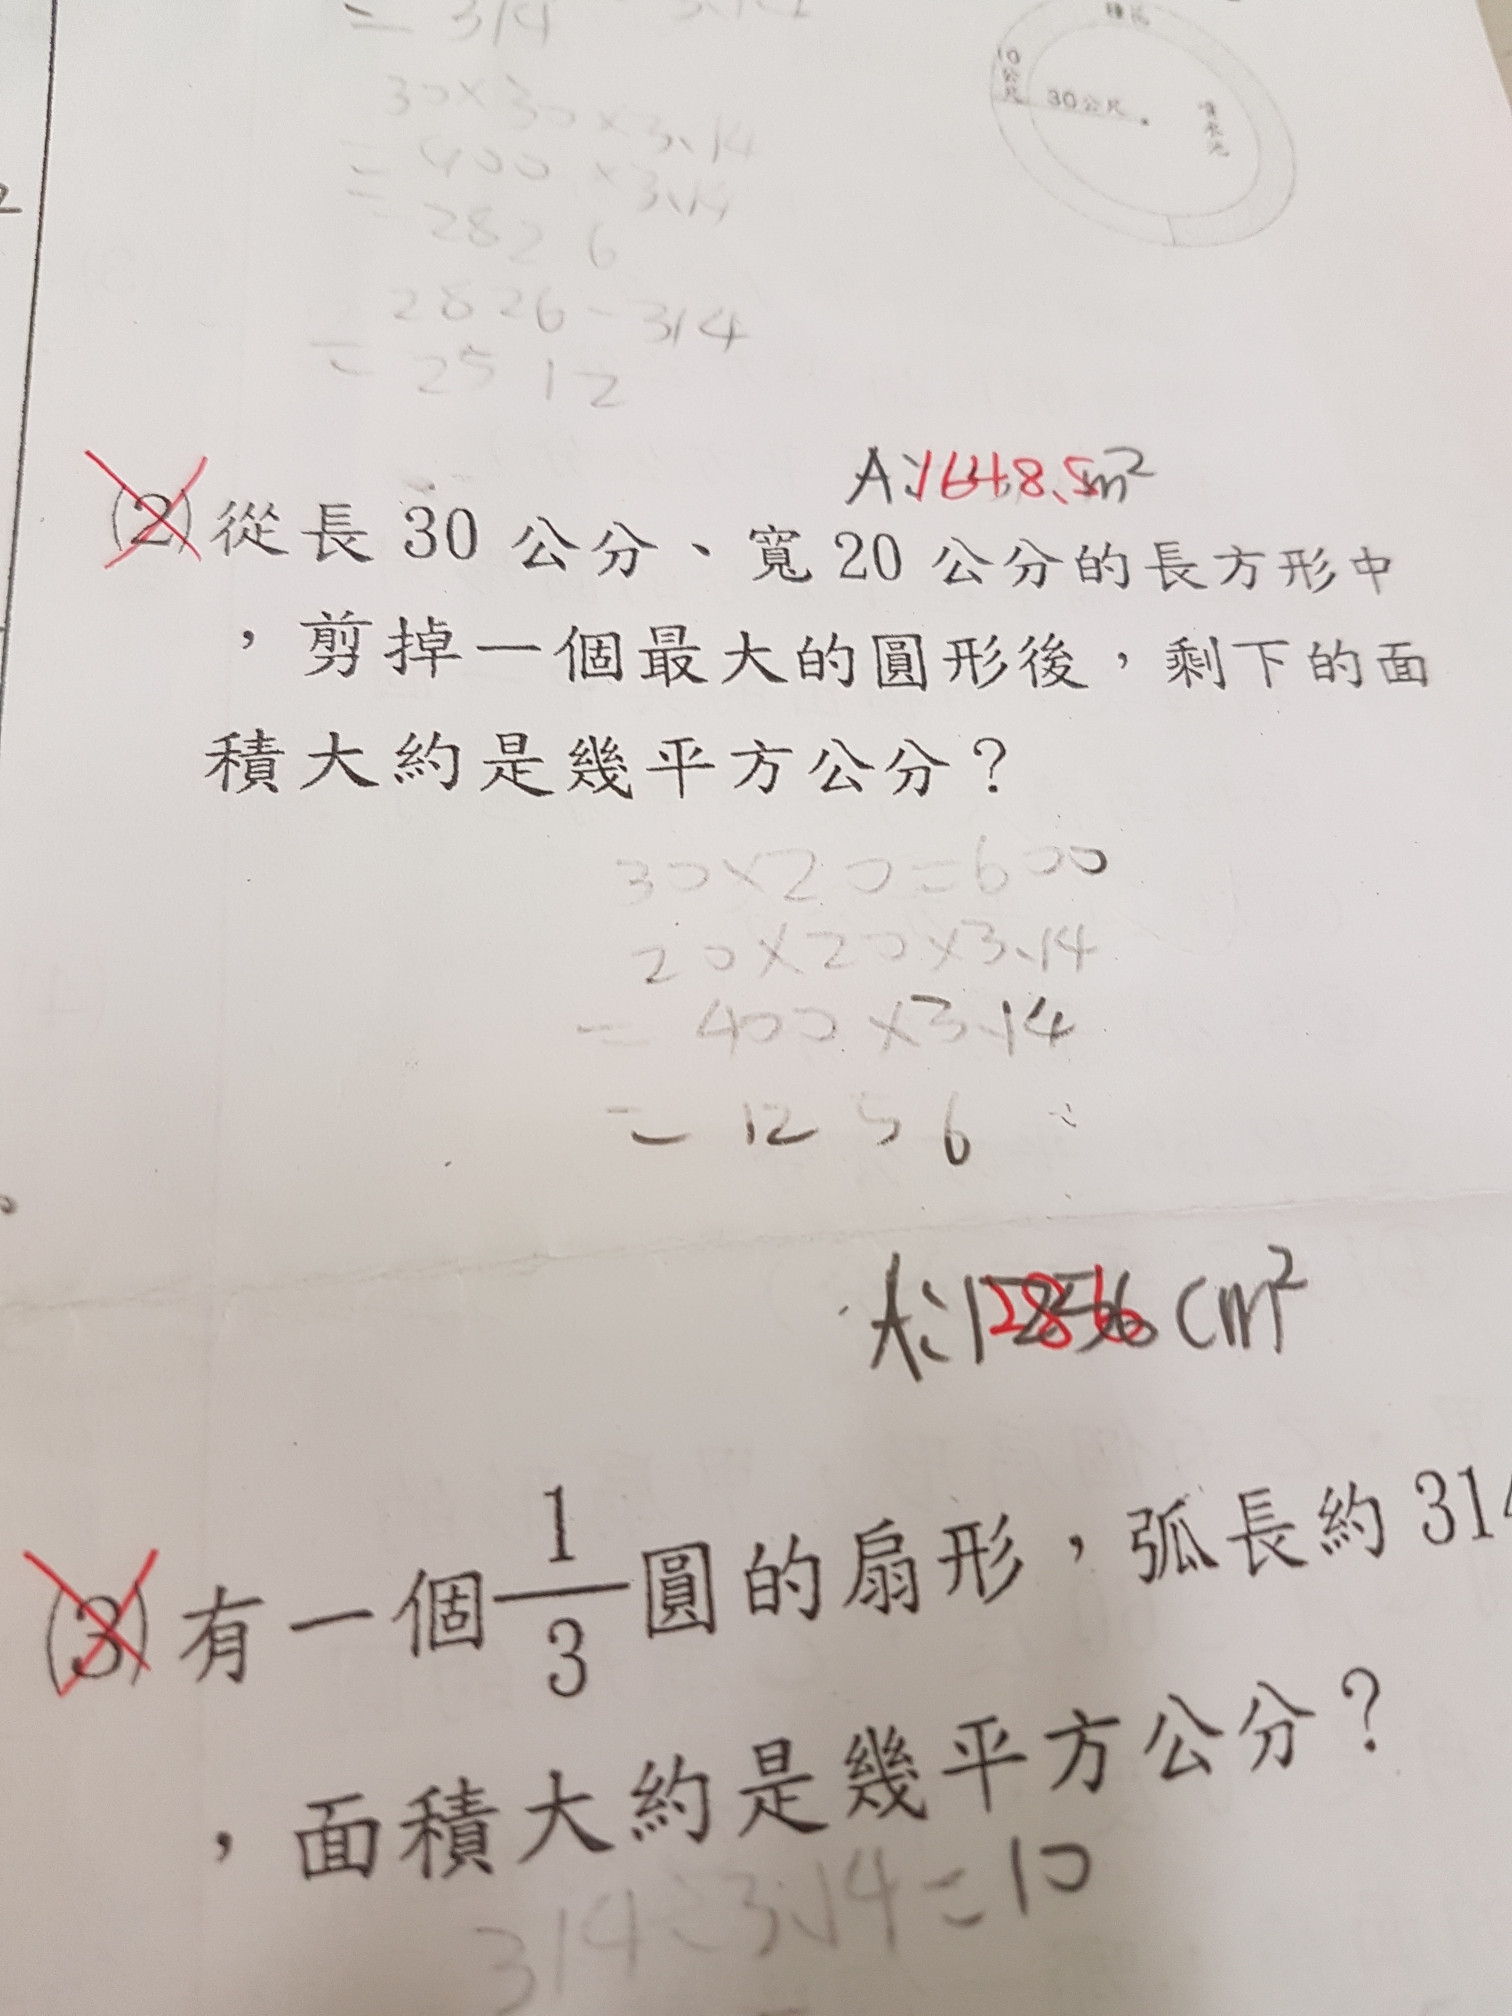 = 314
種花
10公尺
30公尺
噴水池
30×30×3.14
= 900×3.14
= 2826
2826-314
= 2512
A:1648.5m²
(2)從長 30 公分、寬 20 公分的長方形中
，剪掉一個最大的圓形後，剩下的面
積大約是幾平方公分？
30×20=600
20×20×3.14
= 400×3.14
= 1256
A: 286 cm²
(3)有一個 1/3 圓的扇形，弧長約 314
，面積大約是幾平方公分？
314÷3.14=10